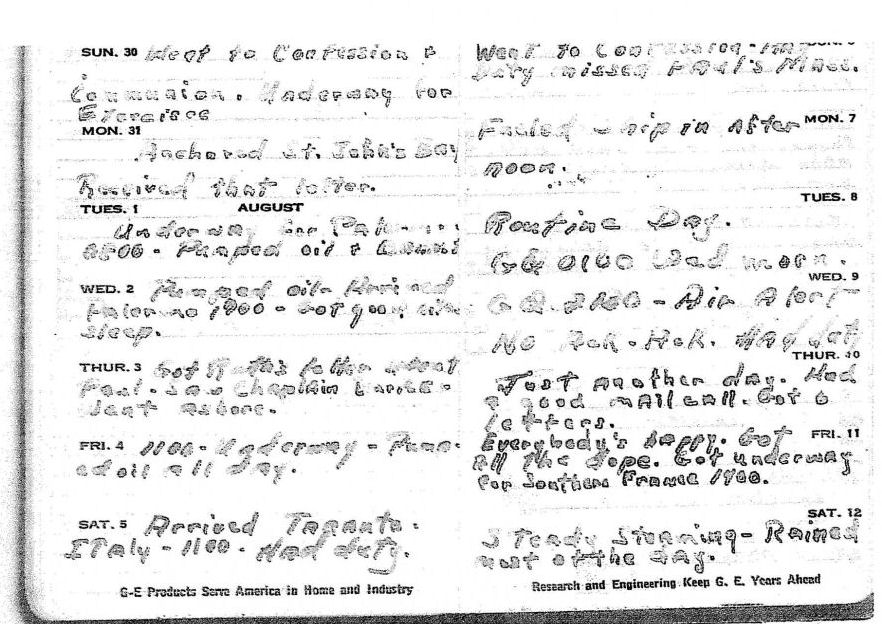 SUN. 30 Went to Confession &
Communion. Underway for
Exercises
MON. 31
Anchored St. John's Bay
Received that letter.
TUES. 1 AUGUST
Underway for
0500 - Pumped oil &
WED. 2 Pumped oil - Arrived
Palermo 1900 - Got good
sleep.
THUR. 3 Got Ruth's letter about
Paul. Saw Chaplain
Went ashore.
FRI. 4 1100 - Underway - Pump-
ed oil all day.
SAT. 5 Arrived Taranto.
ITaly - 1100. Had duty.
G-E Products Serve America in Home and Industry
Went To Confession - Had
Duty missed PAul's MAss.
MON. 7
Fueled ship in After
noon.
TUES. 8
Routine Day.
GQ 0100 Wed morn.
WED. 9
GQ 2130 - Air Alert
No Ack-Ack. HAd duty
THUR. 10
Just another day. Had
a good mAil call. Got 6
letters.
Everybody's happy. Got FRI. 11
All The dope. Got underway
for Southern France 1900.
SAT. 12
STeady Steaming - Rained
most of the day.
Research and Engineering Keep G. E. Years Ahead